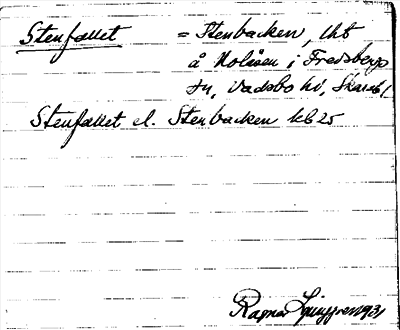 Stenfallet = Stenbacken, lht
å Holåsen i Fredsbergs
sn, Vadsbo hd, Skarab. l.
Stenfallet el. Stenbacken lcb 25
Ragnar Ljunggren 1931